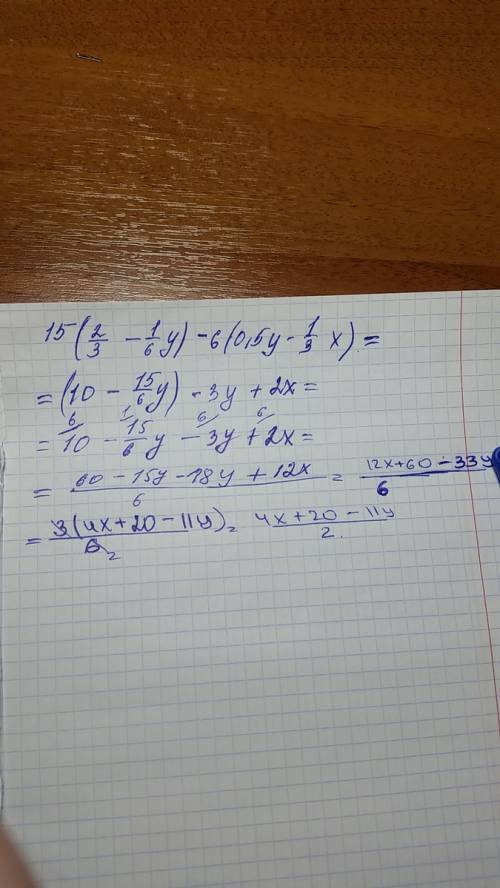 15(2/3 - 1/6 y) - 6(0,5y - 1/3 x) =
= (10 - 15/6 y) - 3y + 2x =
= 6/ 10 - 1/ 15/6 y - 6/ 3y + 6/ 2x =
= (60 - 15y - 18y + 12x)/6 = (12x + 60 - 33y)/6
= 3(4x + 20 - 11y)/6 2 = (4x + 20 - 11y)/2.